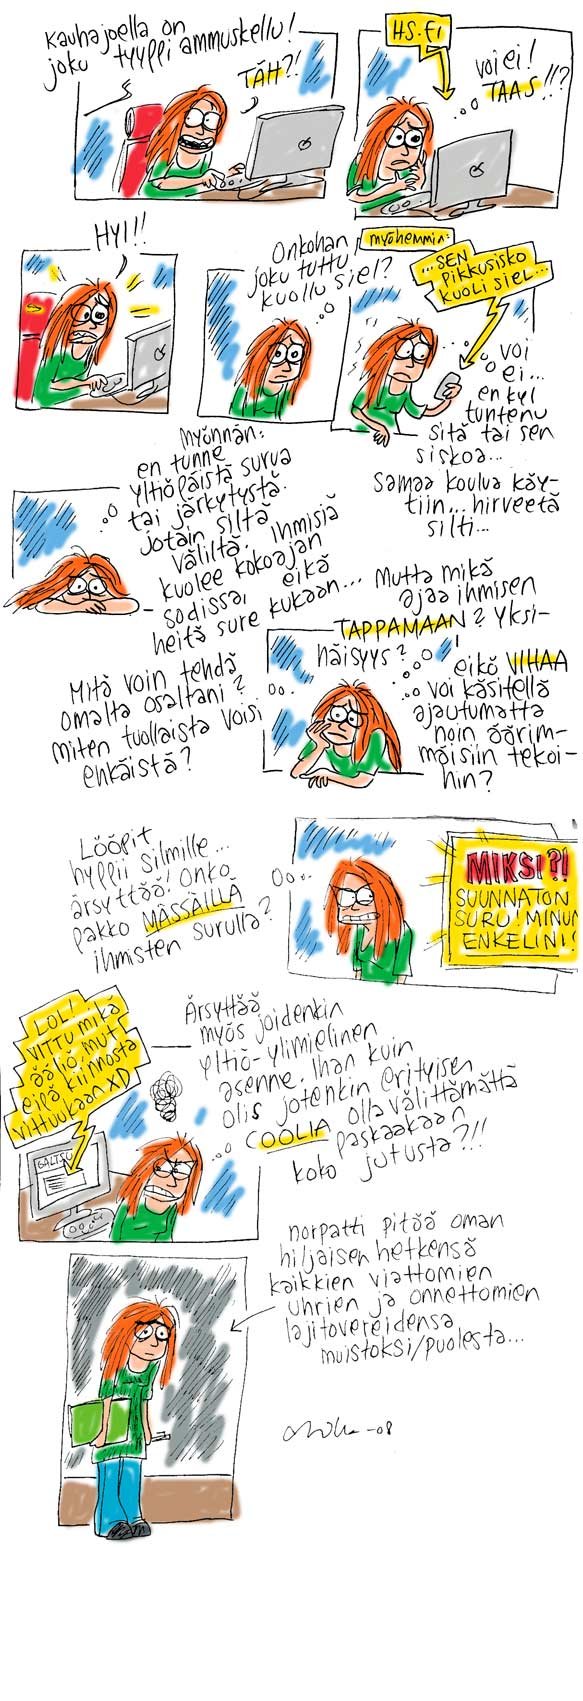 Kauhajoella on
joku tyyppi ammuskellu!
TÄH?!
HS.FI
voi ei!
TAAS!!?
HYI!!
Onkohan
joku tuttu
kuollu siel?
myöhemmin:
...SEN
PIKKUSISKO
KUOLI SIEL...
voi
ei...
en kyl
tuntenu
sitä tai sen
siskoa...
Samaa koulua käy-
tiin... hirveetä
silti...
Myönnän:
en tunne
yltiöpäistä surua
tai järkytystä.
jotain siltä
väliltä. Ihmisiä
kuolee kokoajan
sodissa, eikä
heitä sure kukaan...
Mutta mikä
ajaa ihmisen
TAPPAMAAN? Yksi-
näisyys?
eikö VIHAA
voi käsitellä
ajautumatta
noin äärim-
mäisiin tekoi-
hin?
Mitä voin tehdä
omalta osaltani?
miten tuollaista voisi
ehkäistä?
Lööpit
hyppii silmille...
ärsyttää! Onko
pakko MÄSSÄILLÄ
ihmisten surulla?
MIKSI?!
SUUNNATON
SURU! MINUN
ENKELINI!
LOL!
VITTU MIKÄ
ÄÄLIÖ, MUT
EIPÄ KIINNOSTA
VITTUUKAAN XD
GALTSU
Ärsyttää
myös joidenkin
yltiö-ylimielinen
asenne. Ihan kuin
olis jotenkin erityisen
COOLIA olla välittämättä
paskaakaan
koko jutusta?!!
norpatti pitää oman
hiljaisen hetkensä
kaikkien viattomien
uhrien ja onnettomien
lajitovereidensa
muistoksi/puolesta...
-08